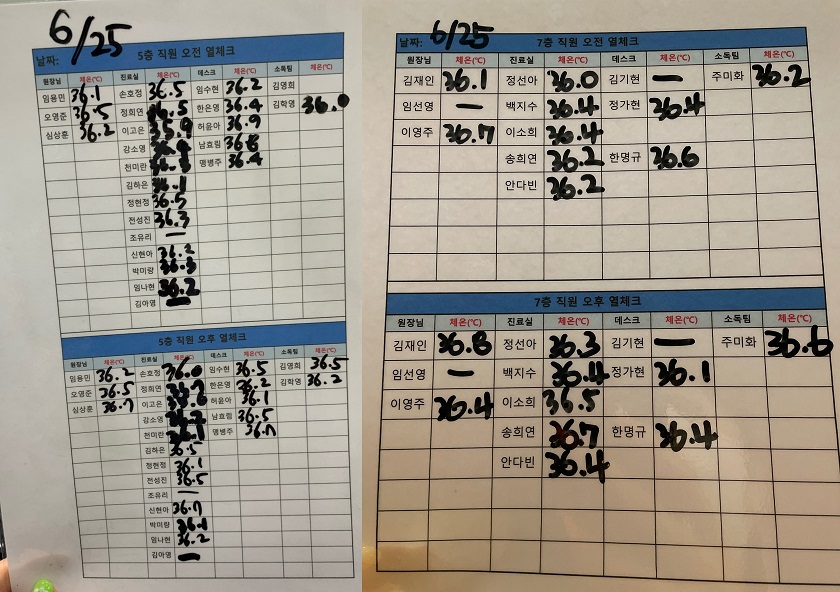 6/25
날짜: 5층 직원 오전 열체크
원장님 체온(℃) 진료실 체온(℃) 데스크 체온(℃) 소독팀 체온(℃)
임용민 36.1 손호정 36.5 임수현 36.2 김영희
오영준 36.5 정희연 36.5 한은영 36.4 김학영 36.0
심상훈 36.2 이고은 35.9 허윤아 36.9
강소영 남효림 36.8
천미란 맹병주 36.4
김하은 36.1
정현정 36.5
전성진 36.3
조유리 —
신현아 36.2
박미랑 36.3
임나현 36.2
김아영 —
5층 직원 오후 열체크
원장님 체온(℃) 진료실 체온(℃) 데스크 체온(℃) 소독팀 체온(℃)
임용민 36.2 손호정 36.0 임수현 36.5 김영희 36.5
오영준 36.5 정희연 한은영 36.2 김학영 36.2
심상훈 36.7 이고은 허윤아 36.1
강소영 남효림 36.5
천미란 36.1 맹병주 36.7
김하은 36.5
정현정 36.1
전성진 36.5
조유리 —
신현아 36.7
박미랑 36.1
임나현 36.2
김아영 —
6/25
날짜: 7층 직원 오전 열체크
원장님 체온(℃) 진료실 체온(℃) 데스크 체온(℃) 소독팀 체온(℃)
김재인 36.1 정선아 36.0 김기현 — 주미화 36.2
임선영 — 백지수 36.4 정가현 36.4
이영주 36.7 이소희 36.4
송희연 36.2 한명규 36.6
안다빈 36.2
7층 직원 오후 열체크
원장님 체온(℃) 진료실 체온(℃) 데스크 체온(℃) 소독팀 체온(℃)
김재인 36.8 정선아 36.3 김기현 — 주미화 36.6
임선영 — 백지수 36.4 정가현 36.1
이영주 36.4 이소희 36.5
송희연 36.7 한명규 36.4
안다빈 36.4